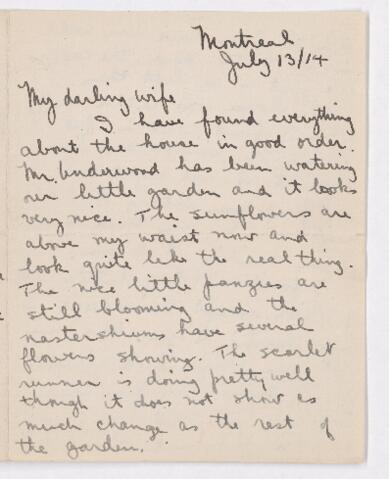 Montreal
July 13/14
My darling wife
I have found everything
about the house in good order.
Mr. Underwood has been watering
our little garden and it looks
very nice. The sunflowers are
above my waist now and
look quite like the real thing.
The nice little panzies are
still blooming and the
nastershiums have several
flowers showing. The scarlet
runner is doing pretty well
though it does not show as
much change as the rest of
the garden.